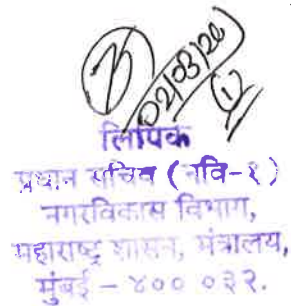 02/03/20
लिपिक
प्रधान सचिव (नवि-१)
नगरविकास विभाग,
महाराष्ट्र शासन, मंत्रालय,
मुंबई - ४०० ०३२.